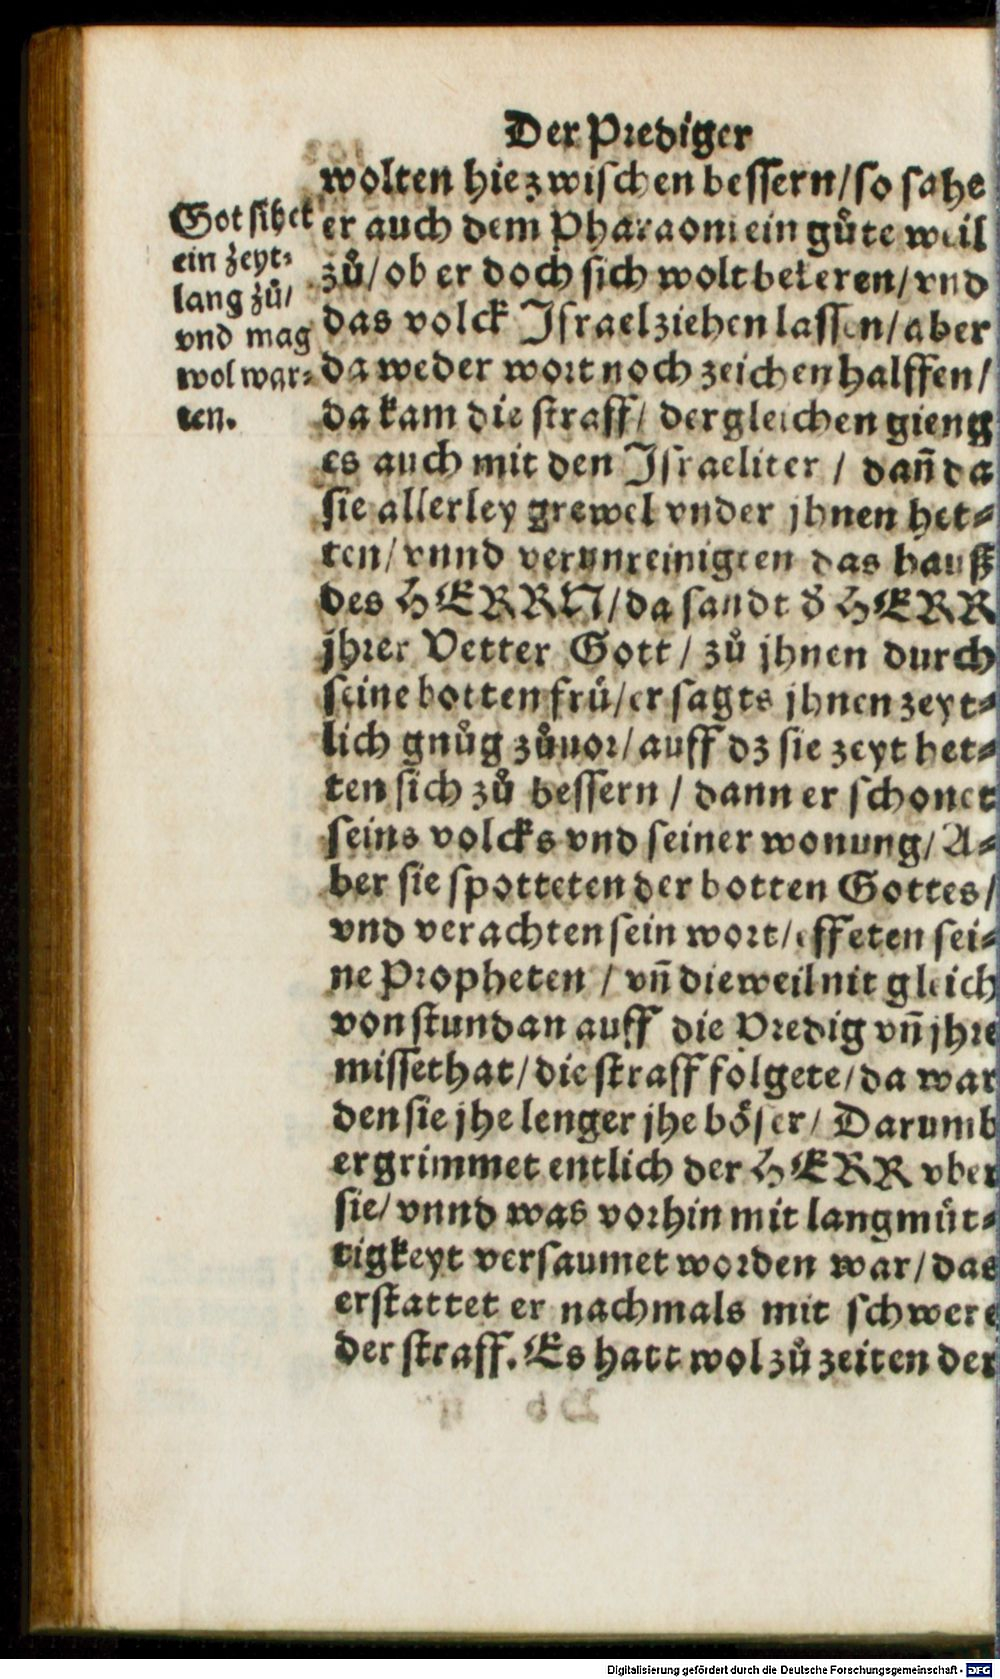 Der Prediger
wolten hiezwischen bessern/so sahe
er auch dem Pharaoni ein gůte weil
zů/ob er doch sich wolt bekeren/vnd
das volck Israel ziehen lassen/aber
da weder wort noch zeichen halffen/
da kam die straff/ dergleichen gieng
es auch mit den Israeliter / dañ da
sie allerley grewel vnder jhnen het⸗
ten/vnnd verunreinigten das hauß
des HERRN/da sandt d̓ HERR
jhrer Vetter Gott/ zů jhnen durch
seine botten frů/er sagts jhnen zeyt⸗
lich gnůg zůuor/auff dz sie zeyt het⸗
ten sich zů bessern / dann er schonet
seins volcks vnd seiner wonung/A⸗
ber sie spotteten der botten Gottes/
vnd verachten sein wort/effeten sei⸗
ne Propheten / vñ dieweil nit gleich
von stundan auff die Predig vñ jhre
missethat/die straff folgete/da war
den sie jhe lenger jhe böser/ Darumb
ergrimmet entlich der HERR vber
sie/vnnd was vorhin mit langmüt⸗
tigkeyt versaumet worden war/das
erstattet er nachmals mit schwere
der straff. Es hatt wol zů zeiten der
Got sihet
ein zeyt⸗
lang zů/
vnd mag
wol war⸗
ten.
Digitalisierung gefördert durch die Deutsche Forschungsgemeinschaft - DFG